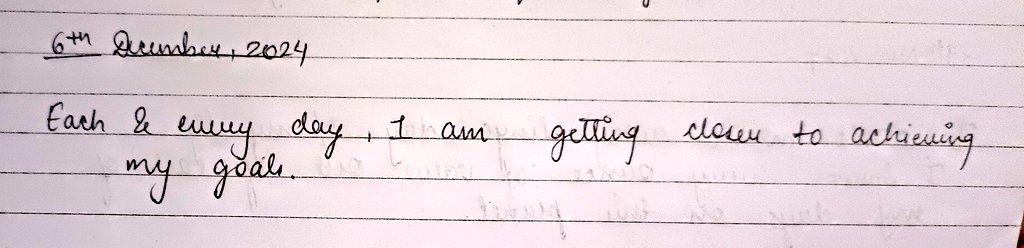 6th December, 2024
Each & every day, I am getting closer to achieving
my goals.